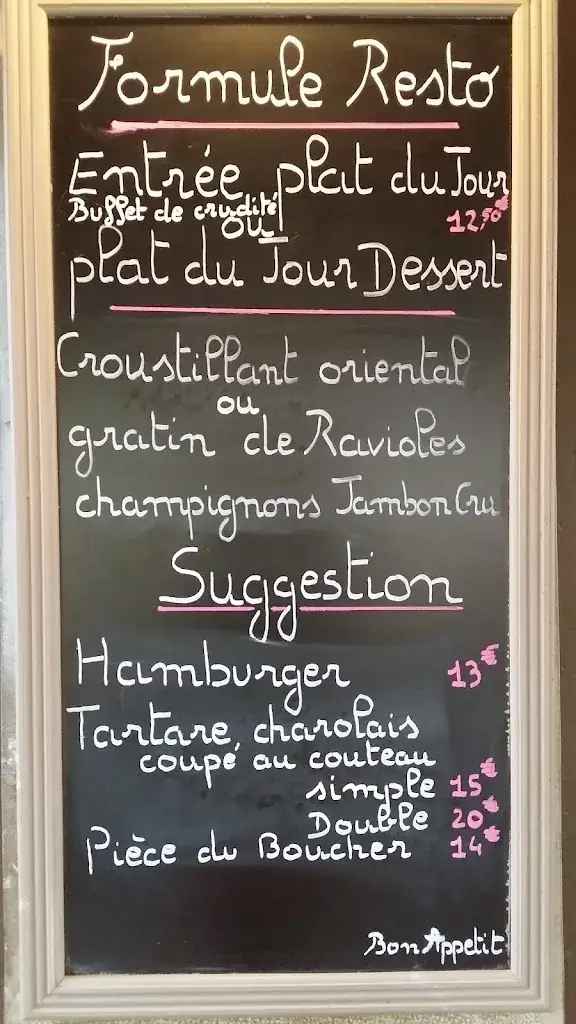 Formule Resto
Entrée plat du Jour
Buffet de crudité
ou
12,50€
plat du Jour Dessert
Croustillant oriental
ou
gratin de Ravioles
champignons Jambon Cru
Suggestion
Hamburger 13€
Tartare charolais
coupé au couteau
simple 15€
Double 20€
Pièce du Boucher 14€
Bon Appetit